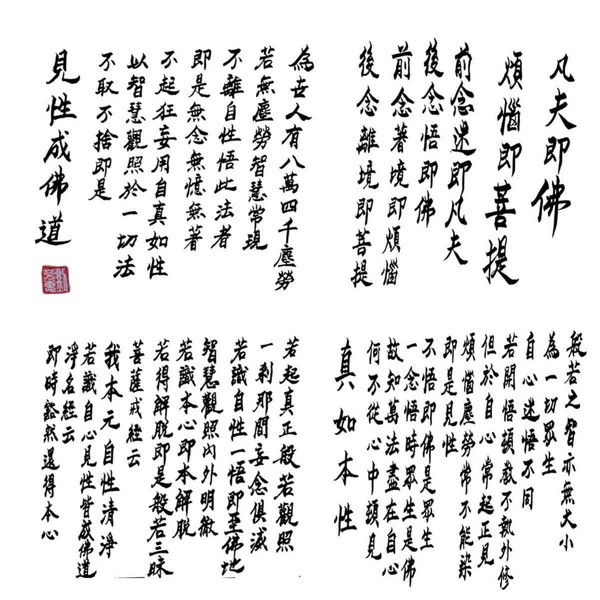 凡夫即佛
煩惱即菩提
前念迷即凡夫
後念悟即佛
前念著境即煩惱
後念離境即菩提
為世人有八萬四千塵勞
若無塵勞智慧常現
不離自性悟此法者
即是無念無憶無著
不起狂妄用自真如性
以智慧觀照於一切法
不取不捨即是
見性成佛道
般若之智亦無大小
為一切眾生
自心迷悟不同
若開悟頓教不執外修
但於自心常起正見
煩惱塵勞常不能染
即是見性
不悟即佛是眾生
一念悟時眾生是佛
故知萬法盡在自心
何不從心中頓見
真如本性
若起真正般若觀照
一剎那間妄念俱滅
若識自性一悟即至佛地
智慧觀照內外明徹
若識本心即本解脫
若得解脫即是般若三昧
菩薩戒經云
我本元自性清淨
若識自心見性皆成佛道
淨名經云
即時豁然還得本心